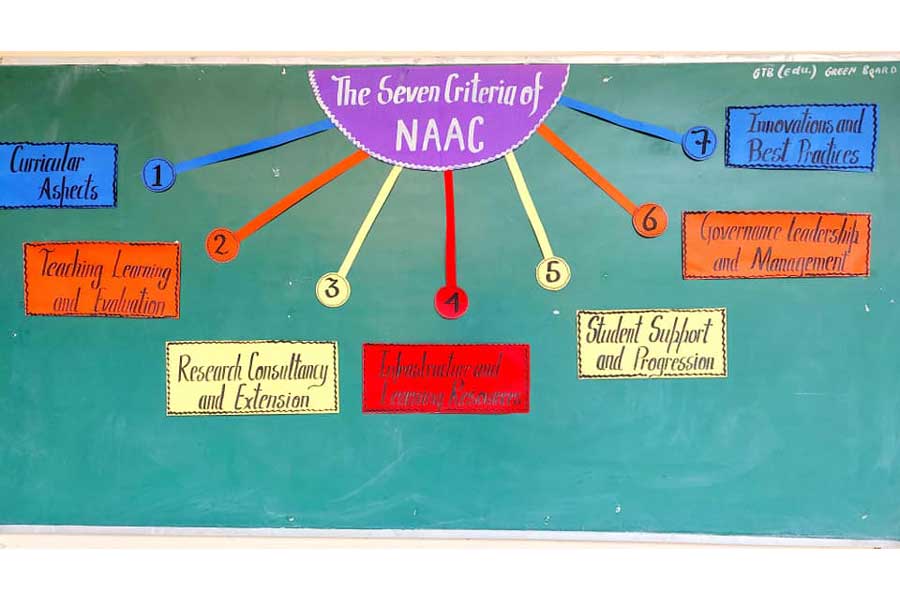 The Seven Criteria of
NAAC
GTB (edu.) GREEN BOARD
1
Curricular
Aspects
2
Teaching Learning
and Evaluation
3
Research Consultancy
and Extension
4
Infrastructure and
Learning Resources
5
Student Support
and Progression
6
Governance Leadership
and Management
7
Innovations and
Best Practices